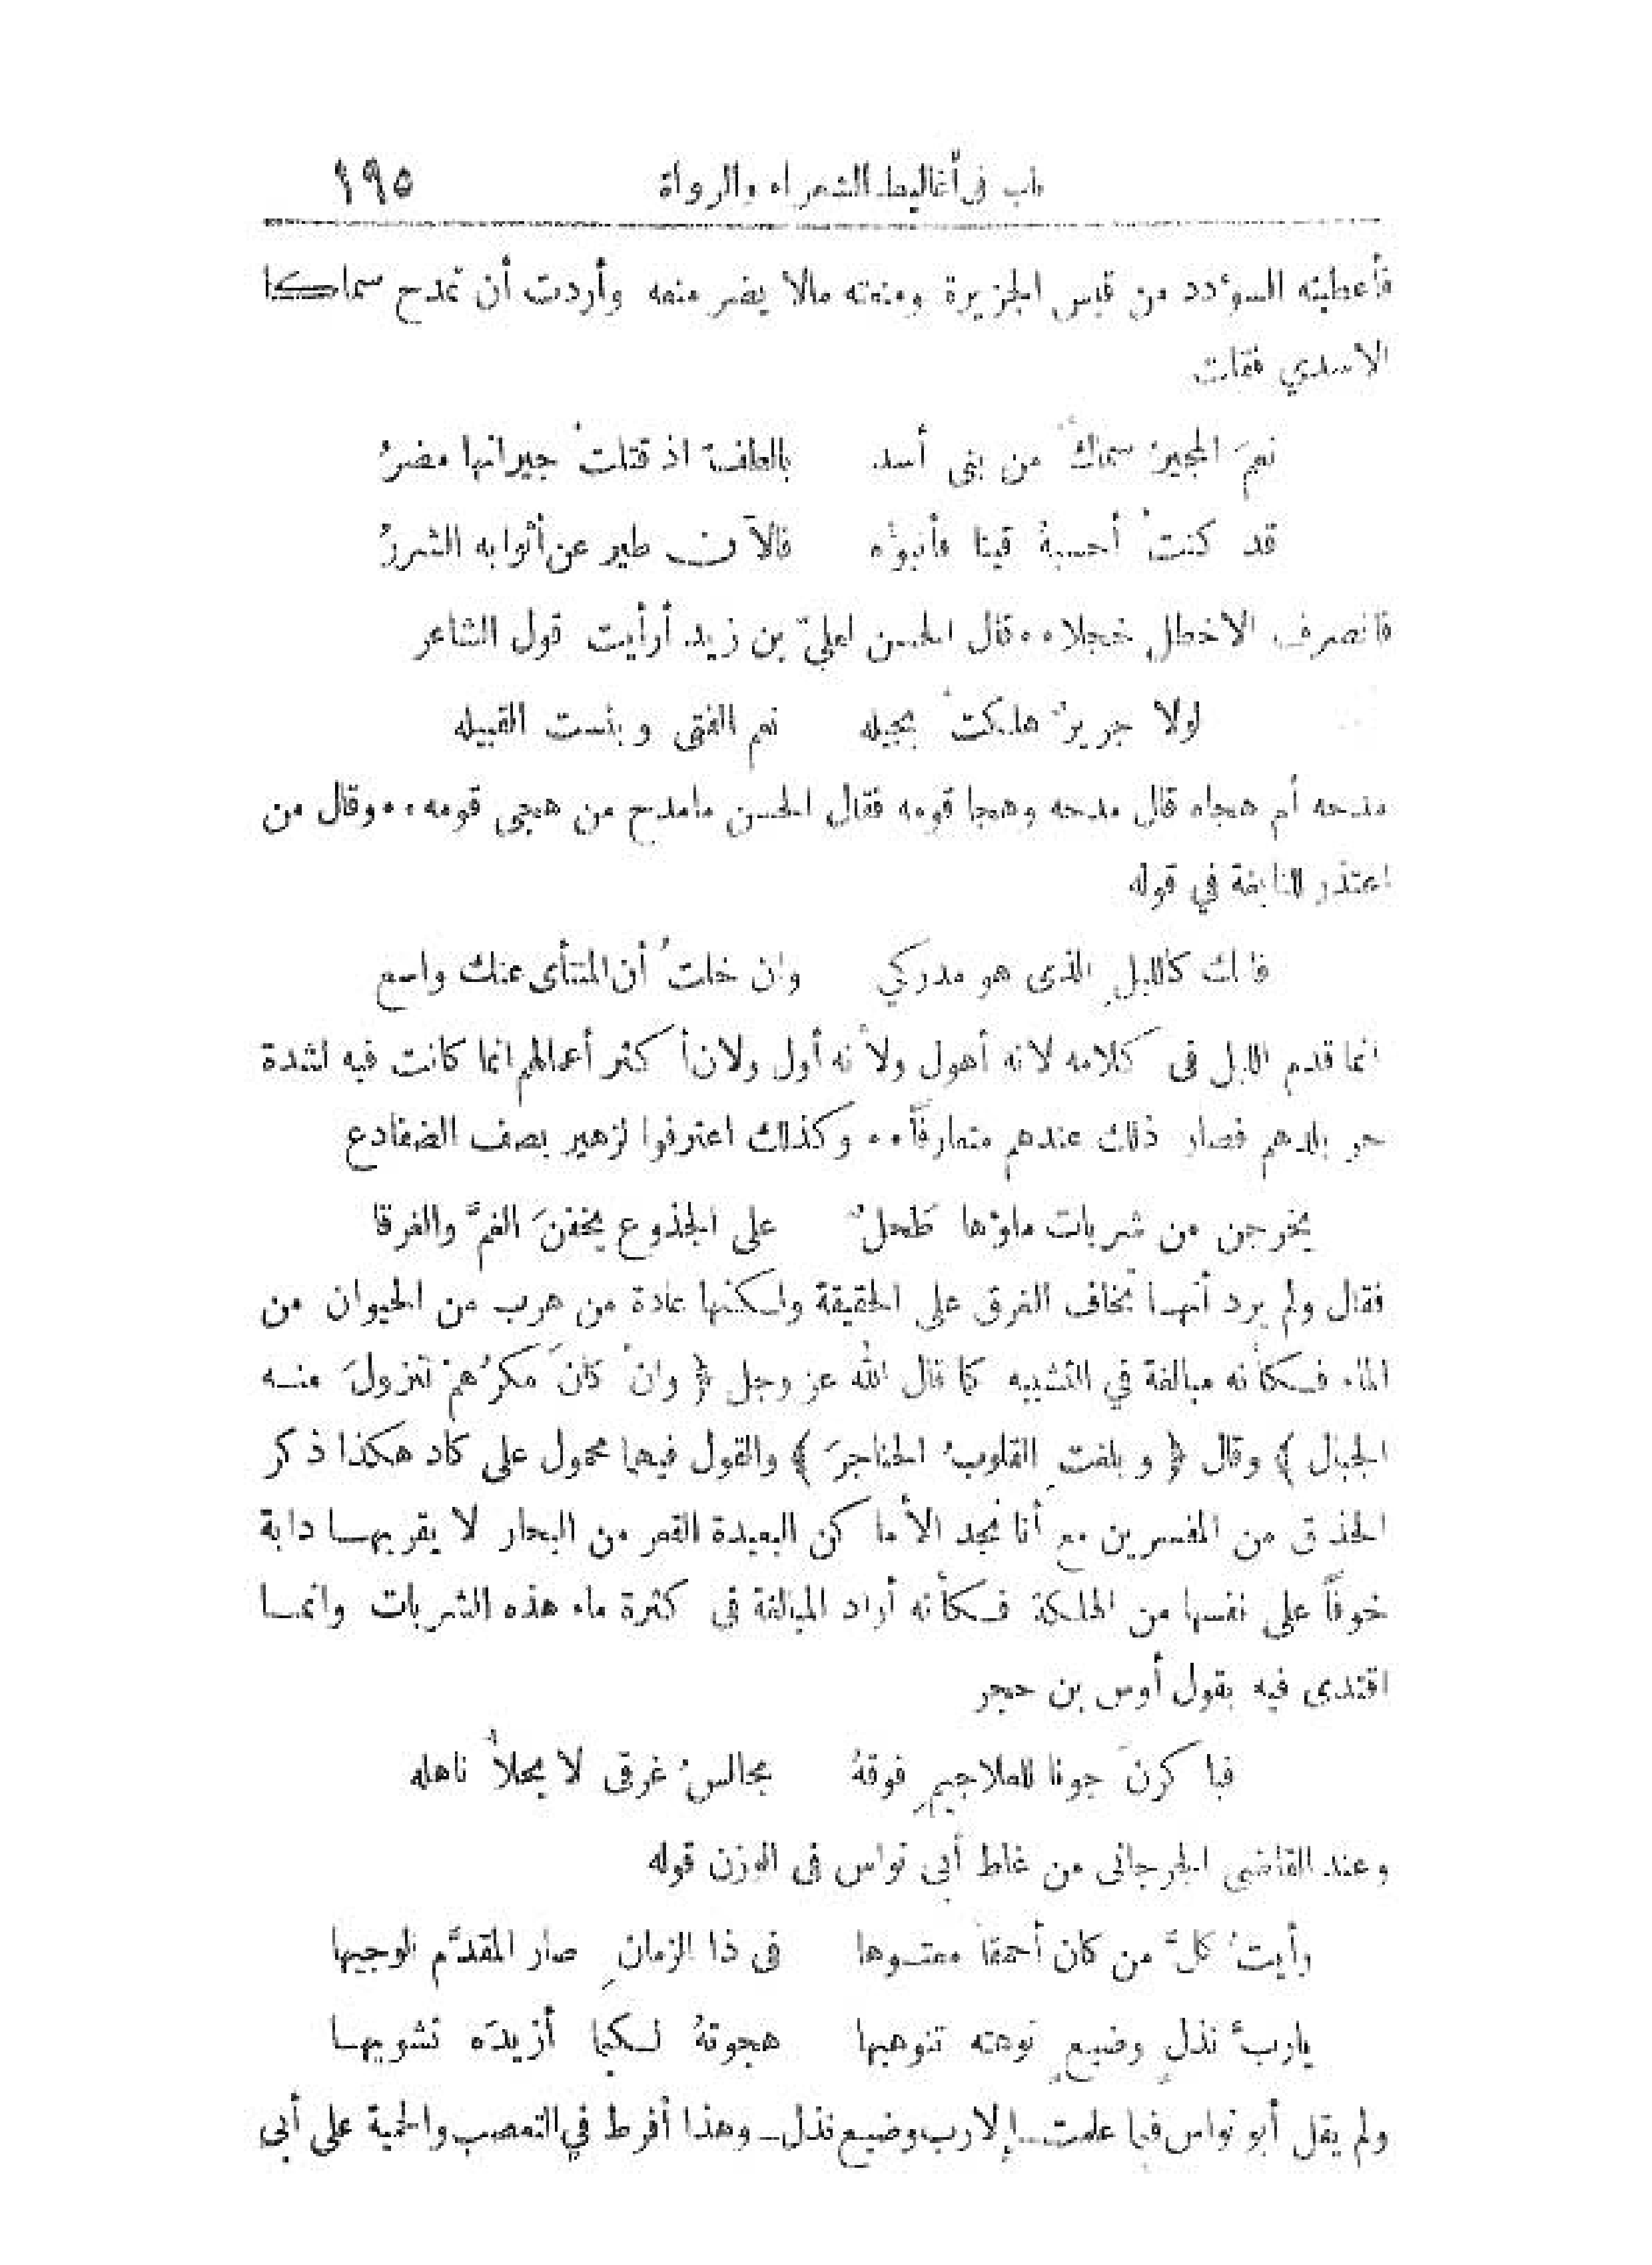 باب في أغاليط الشعراء والرواة ١٩٥
فأعطيته السؤدد من قيس الجزيرة ومنعته مالا يضر منعه وأردت أن تمدح سماكا
الاسدي فقلت
نعمَ المجيرُ سماكٌ من بنى أسد بالطف اذ قتلتْ جيرانها مضرُ
قد كنتُ أحسبهُ قينا وأنبؤه فالآن طير عن أثوابه الشررُ
فانصرف الاخطل خجلا ٠٠ قال الحسن لعليّ بن زيد أرأيت قول الشاعر
لولا جريرٌ هلكتْ بجيله نعم الفتى وبئست القبيله
مدحه أم هجاه قال مدحه وهجا قومه فقال الحسن مامدح من هجى قومه ٠٠ وقال من
اعتذر للنابغة في قوله
فانك كالليلِ الذى هو مدركي وان خلتُ أن المنتأى عنك واسع
انما قدم الليل فى كلامه لانه أهول ولأنه أول ولان أكثر أعمالهم انما كانت فيه لشدة
حر بلدهم فصار ذلك عندهم متعارفاً ٠٠ وكذلك اعترفوا لزهير يصف الضفادع
يخرجن من شربات ماؤها طَحلٌ على الجذوع يخفنَ الغمَّ والغرقا
فقال ولم يرد أنهـا تخاف الغرق على الحقيقة ولـكنها عادة من هرب من الحيوان من
الماء فـكأنه مبالغة في التشبيه كما قال الله عز وجل ﴿ وانْ كانَ مكرُهمْ لتزولَ منـه
الجبال ﴾ وقال ﴿ وبلغتِ القلوبُ الحناجرَ ﴾ والقول فيهما محمول على كاد هكذا ذكر
الحذاق من المفسرين مع أنا نجد الأماكن البعيدة القعر من البحار لا يقربهـا دابة
خوفاً على نفسها من الهلكة فـكأنه أراد المبالغة فى كثرة ماء هذه الشربات وانمـا
اقتدى فيه بقول أوس بن حجر
فباكرنَ جونا للعلاجيمِ فوقهُ مجالسُ غرقى لا يحلأُ ناهله
وعند القاضي الجرجانى من غلط أبي نواس فى الوزن قوله
رأيتُ كلَّ من كان أحمقا معتـوها فى ذا الزمانِ صار المقدَّم الوجيها
ياربَّ نذلٍ وضيعٍ نوهته تنويها هجوتهُ لـكيما أزيدَه تشويهـا
ولم يقل أبو نواس فيما علمت ـ إلا رب وضيع نذل ـ وهذا أفرط في التعصب والحمية على أبي